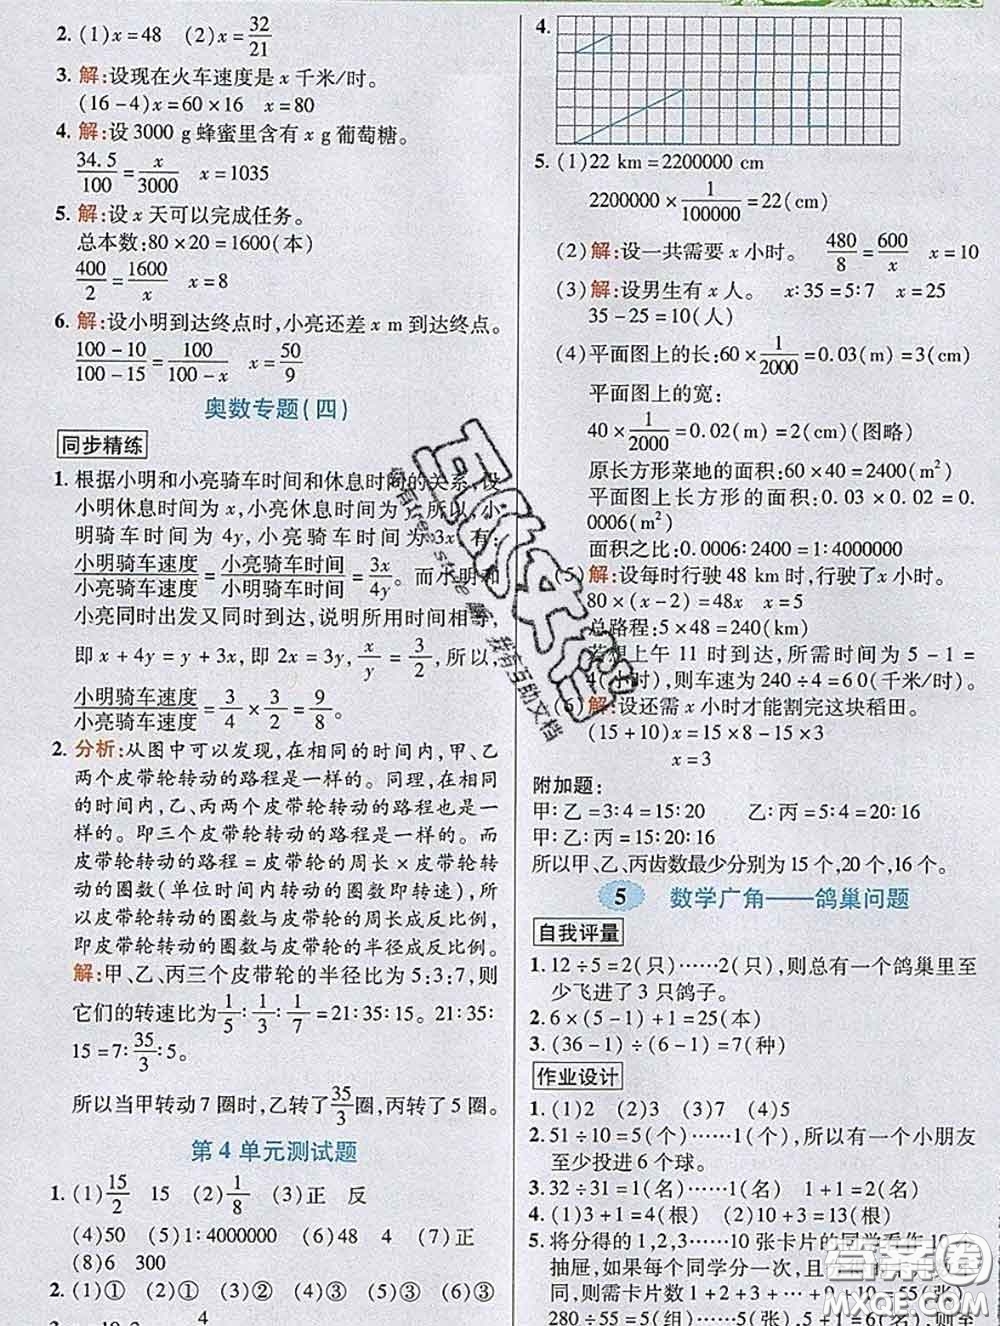 2. (1)x=48 (2)x=32/21
3. 解:设现在火车速度是 x 千米/时。
(16-4)x=60×16 x=80
4. 解:设 3000 g 蜂蜜里含有 x g 葡萄糖。
34.5/100=x/3000 x=1035
5. 解:设 x 天可以完成任务。
总本数:80×20=1600(本)
400/2=1600/x x=8
6. 解:设小明到达终点时,小亮还差 x m 到达终点。
(100-10)/(100-15)=100/(100-x) x=50/9
奥数专题(四)
同步精练
1. 根据小明和小亮骑车时间和休息时间的关系,设
小明休息时间为 x,小亮休息时间为 y,所以,小
明骑车时间为 4y,小亮骑车时间为 3x,有:
小明骑车速度/小亮骑车速度=小亮骑车时间/小明骑车时间=3x/4y。而小明和
小亮同时出发又同时到达,说明所用时间相等,
即 x+4y=y+3x,即 2x=3y,x/y=3/2,所以,
小明骑车速度/小亮骑车速度=3/4×3/2=9/8。
2. 分析:从图中可以发现,在相同的时间内,甲、乙
两个皮带轮转动的路程是一样的。同理,在相同
的时间内,乙、丙两个皮带轮转动的路程也是一
样的。即三个皮带轮转动的路程是一样的。而
皮带轮转动的路程=皮带轮的周长×皮带轮转
动的圈数(单位时间内转动的圈数即转速),所
以皮带轮转动的圈数与皮带轮的周长成反比例,
即皮带轮转动的圈数与皮带轮的半径成反比例。
解:甲、乙、丙三个皮带轮的半径比为 5:3:7,则
它们的转速比为1/5:1/3:1/7=21:35:15。21:35:
15=7:35/3:5。
所以当甲转动 7 圈时,乙转了35/3圈,丙转了 5 圈。
第 4 单元测试题
1. (1)15/2 15 (2)1/8 (3)正 反
(4)50 (5)1:4000000 (6)6 4 (7)正
(8)6 300
2. (1)① (2)① (3)② (4)③ (5)③
4.
5. (1)22 km=2200000 cm
2200000×1/100000=22(cm)
(2)解:设一共需要 x 小时。 480/8=600/x x=10
(3)解:设男生有 x 人。 x:35=5:7 x=25
35-25=10(人)
(4)平面图上的长:60×1/2000=0.03(m)=3(cm)
平面图上的宽:
40×1/2000=0.02(m)=2(cm)(图略)
原长方形菜地的面积:40×60=2400(m²)
平面图上长方形的面积:0.03×0.02=0.
0006(m²)
面积之比:0.0006:2400=1:4000000
(5)解:设每时行驶 48 km 时,行驶了 x 小时。
80×(x-2)=48x x=5
总路程:5×48=240(km)
若想上午 11 时到达,所需时间为 5-1=
4(小时),则车速为 240÷4=60(千米/时)。
(6)解:设还需 x 小时才能割完这块稻田。
(15+10)x=15×8-15×3
x=3
附加题:
甲:乙=3:4=15:20 乙:丙=5:4=20:16
甲:乙:丙=15:20:16
所以甲、乙、丙齿数最少分别为 15 个,20 个,16 个。
5 数学广角——鸽巢问题
自我评量
1. 12÷5=2(只)……2(只),则总有一个鸽巢里至
少飞进了 3 只鸽子。
2. 6×(5-1)+1=25(本)
3. (36-1)÷(6-1)=7(种)
作业设计
1. (1)2 (2)3 (3)4 (4)5
2. 51÷10=5(个)……1(个),所以有一个小朋友
至少投进 6 个球。
3. 32÷31=1(名)……1(名) 1+1=2(名)
4. (1)3+1=4(根) (2)10+3=13(根)
5. 将分得的 1,2,3……10 张卡片的同学看作 10 个
抽屉,如果每个同学分一次,且
同,则需卡片数 1+2+3+…+9+10=55(张),
280÷55=5(组)……5(张),5+1=6(名)
答案圈
MXQE.COM